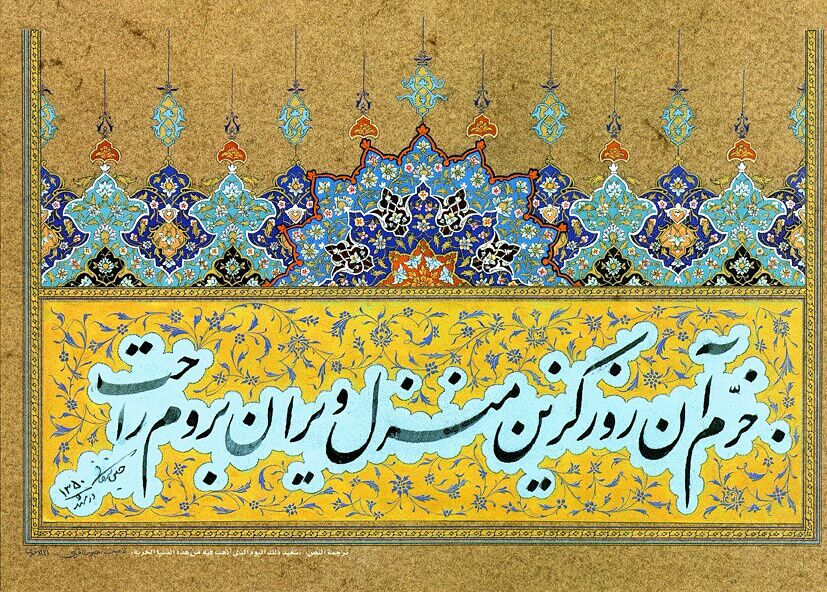 خرّم آن روز کزین منزل ویران بروم راحت
۱۳۵۰
ترجمة النص: سعيد ذلك اليوم الذي أذهب فيه من هذه الدنيا الخربة.